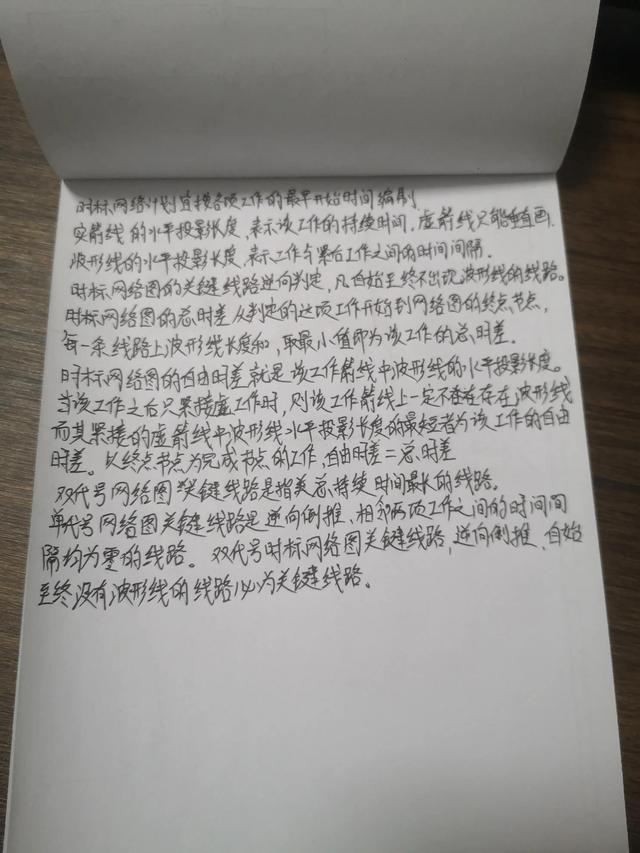 时标网络计划宜按各项工作的最早开始时间编制
实箭线的水平投影长度,表示该工作的持续时间,虚箭线只能垂直画.
波形线的水平投影长度,表示工作与紧后工作之间的时间间隔.
时标网络图的关键线路逆向判定,凡自始至终不出现波形线的线路。
时标网络图的总时差从判定的这项工作开始到网络图的终点节点,
每一条线路上波形线长度和,取最小值即为该工作的总时差.
时标网络图的自由时差就是该工作箭线中波形线的水平投影长度。
当该工作之后只紧接虚工作时,则该工作箭线上一定不存在存在波形线
而其紧接的虚箭线中波形线水平投影长度的最短者为该工作的自由
时差。以终点节点为完成节点的工作,自由时差=总时差
双代号网络图关键线路是指总持续时间最长的线路.
单代号网络图关键线路是逆向倒推、相邻两项工作之间的时间间
隔均为零的线路。双代号时标网络图关键线路,逆向倒推、自始
至终没有波形线的线路必为关键线路。